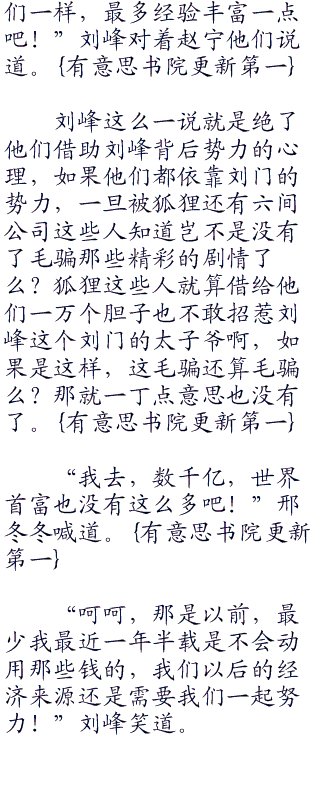 们一样，最多经验丰富一点
吧！”刘峰对着赵宁他们说
道。{有意思书院更新第一}
刘峰这么一说就是绝了
他们借助刘峰背后势力的心
理，如果他们都依靠刘门的
势力，一旦被狐狸还有六间
公司这些人知道岂不是没有
了毛骗那些精彩的剧情了
么？狐狸这些人就算借给他
们一万个胆子也不敢招惹刘
峰这个刘门的太子爷啊，如
果是这样，这毛骗还算毛骗
么？那就一丁点意思也没有
了。{有意思书院更新第一}
“我去，数千亿，世界
首富也没有这么多吧！”邢
冬冬喊道。{有意思书院更新
第一}
“呵呵，那是以前，最
少我最近一年半载是不会动
用那些钱的，我们以后的经
济来源还是需要我们一起努
力！”刘峰笑道。